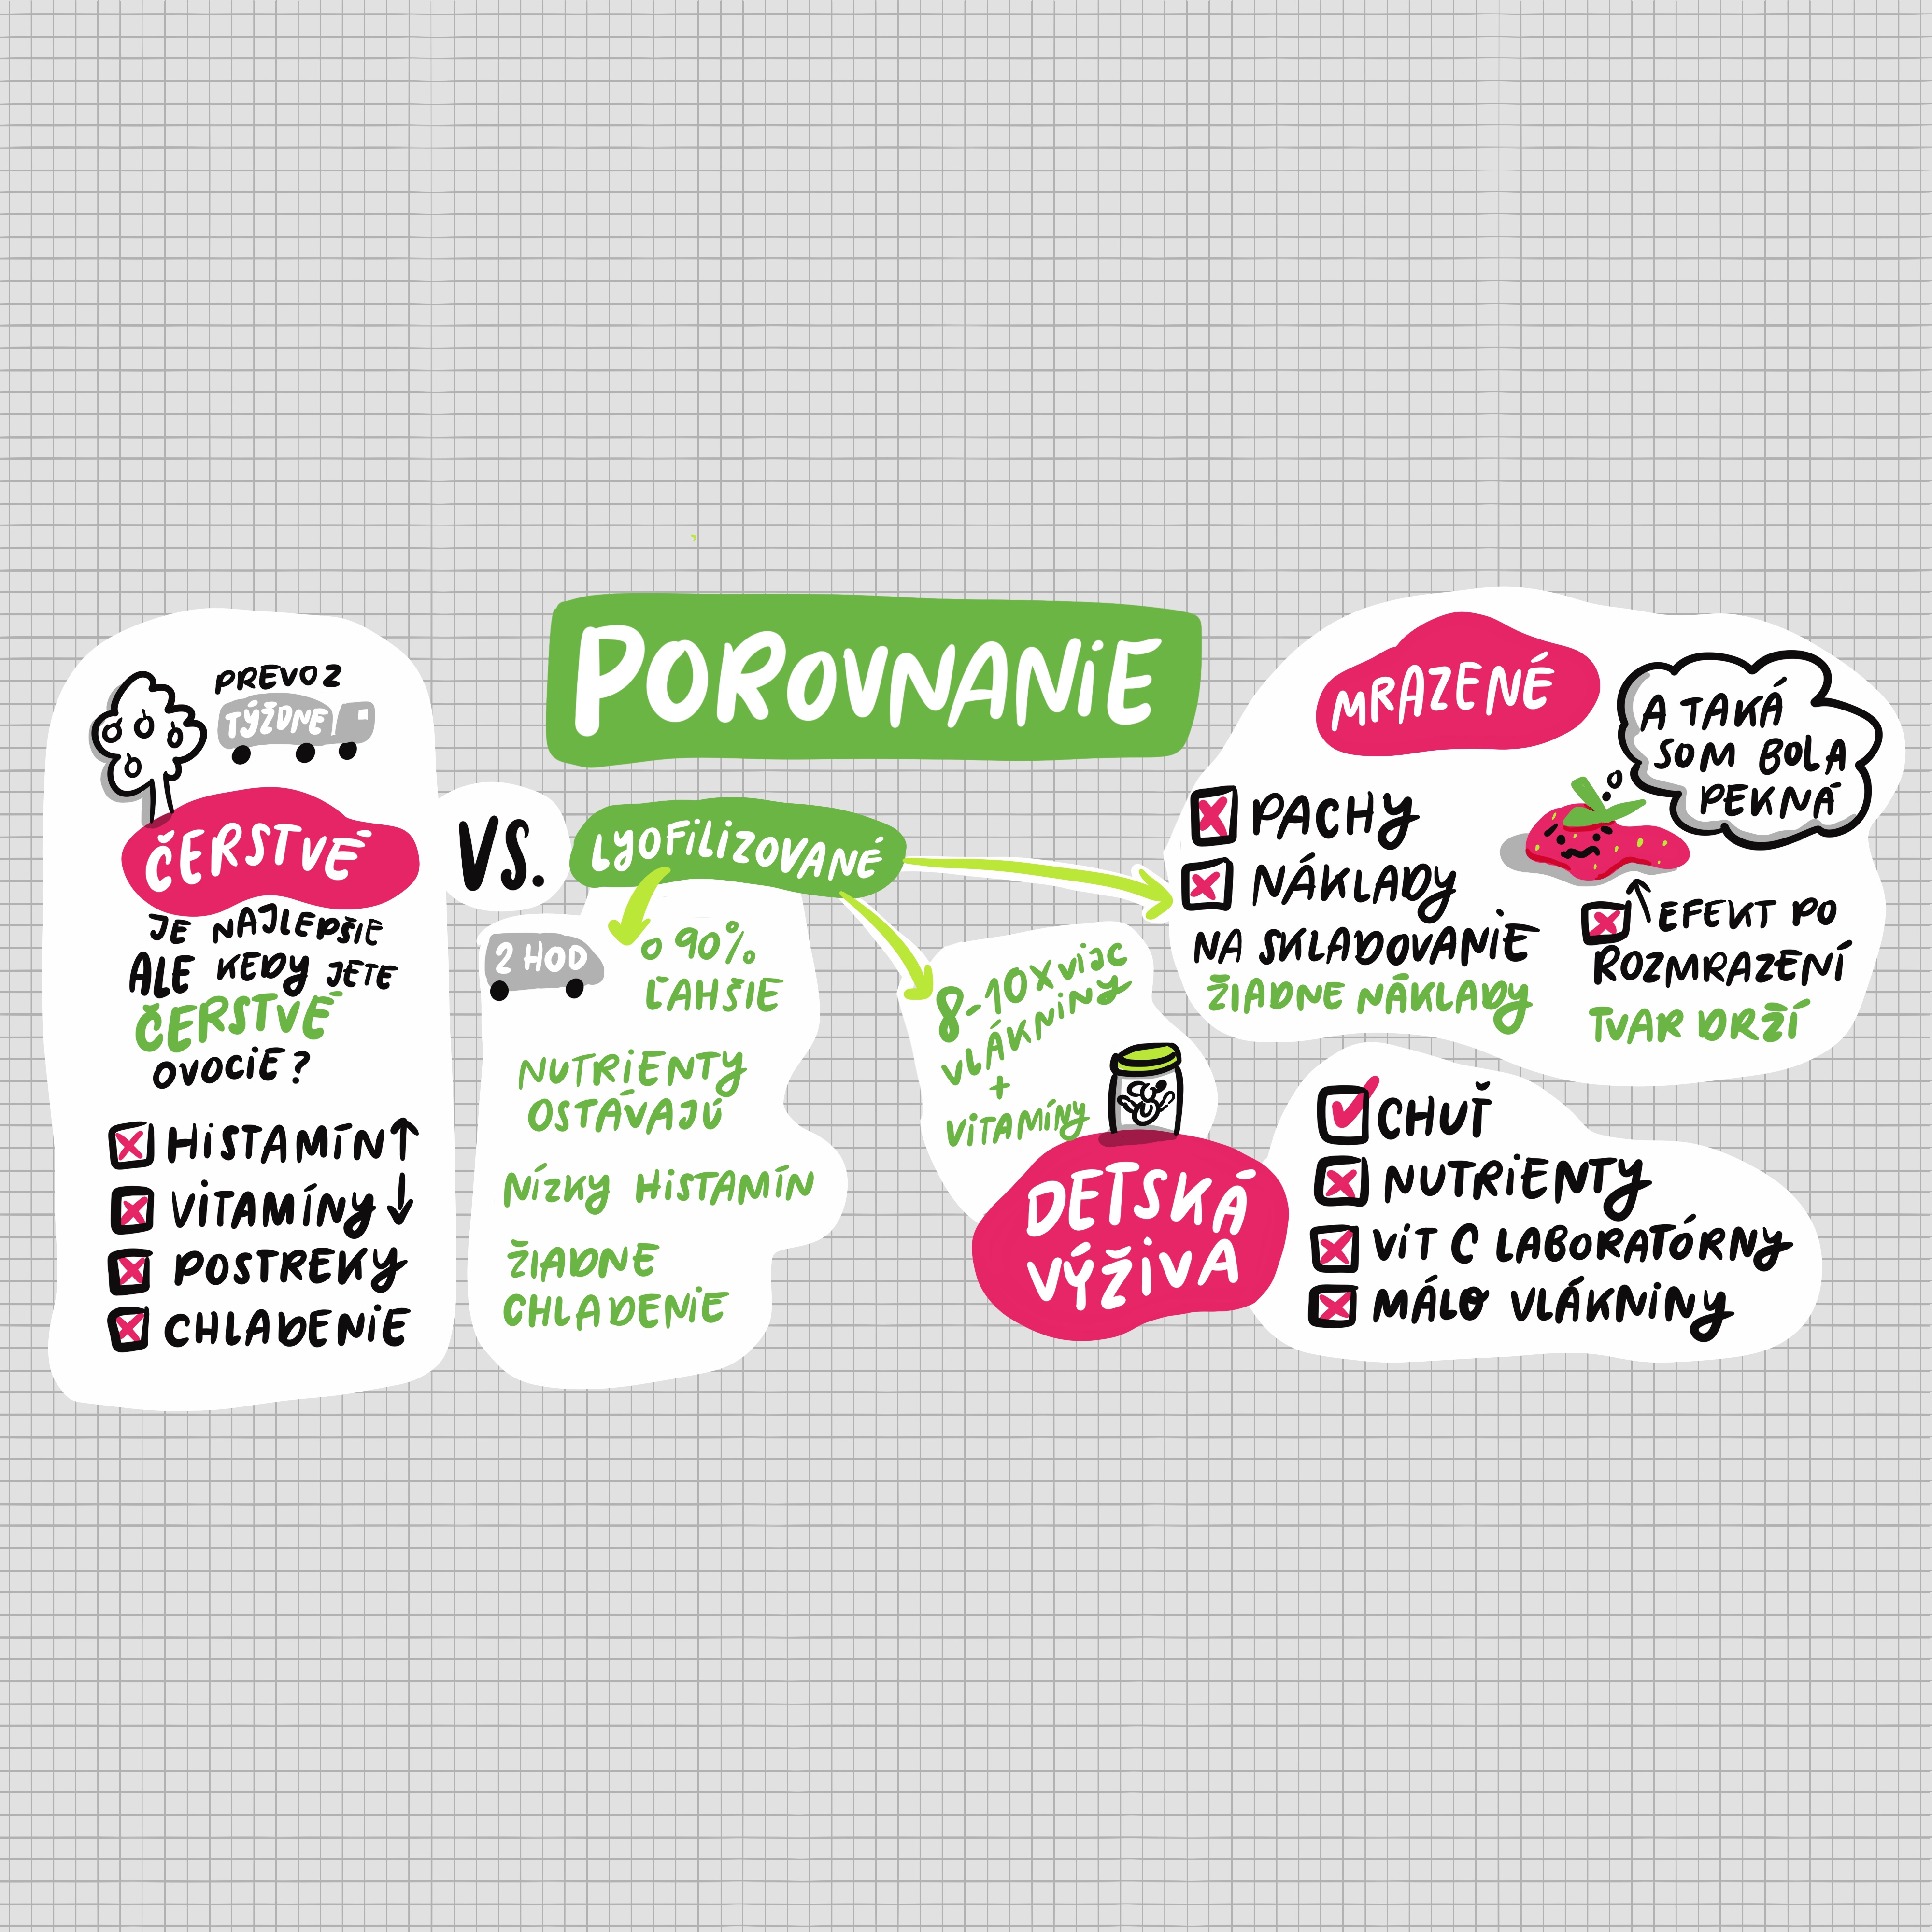 POROVNANIE
PREVOZ
TÝŽDNE
ČERSTVÉ
JE NAJLEPŠIE
ALE KEDY JETE
ČERSTVÉ
OVOCIE?
HISTAMÍN↑
VITAMÍNY↓
POSTREKY
CHLADENIE
VS.
LYOFILIZOVANÉ
2 HOD
O 90%
ĽAHŠIE
NUTRIENTY
OSTÁVAJÚ
NÍZKY HISTAMÍN
ŽIADNE
CHLADENIE
8-10X viac
VLÁKNINY
+
VITAMÍNY
DETSKÁ
VÝŽIVA
CHUŤ
NUTRIENTY
VIT C LABORATÓRNY
MÁLO VLÁKNINY
MRAZENÉ
PACHY
NÁKLADY
NA SKLADOVANIE
ŽIADNE NÁKLADY
A TAKÁ
SOM BOLA
PEKNÁ
↑EFEKT PO
ROZMRAZENÍ
TVAR DRŽÍ